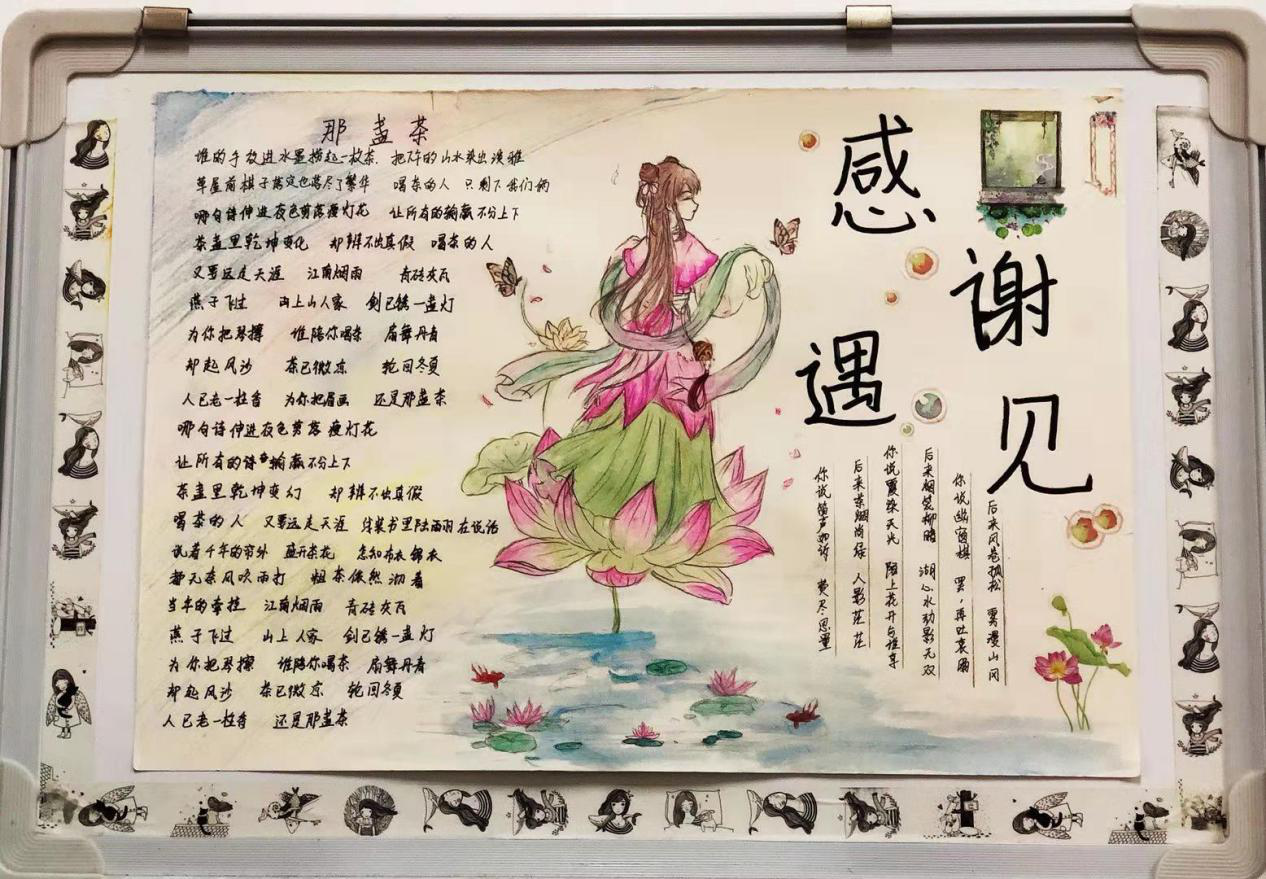 那盏茶
谁的手放进水墨撩起一枚茶 把不争的山水染出淡雅
草屋前棋子落定也落尽了繁华 喝茶的人 只剩下我们俩
哪句诗伸进夜色剪落瘦灯花 让所有的输赢不分上下
茶盏里乾坤变化 却辨不出真假 喝茶的人
又要远走天涯 江南烟雨 青砖灰瓦
燕子飞过 山上人家 剑已锈一盏灯
为你把琴擦 谁陪你喝茶 扇舞丹青
却起风沙 茶已微凉 轮回冬夏
人已老一炷香 为你把眉画 还是那盏茶
哪句诗伸进夜色剪落瘦灯花
让所有的 输赢不分上下
茶盏里乾坤变幻 却辨不出真假
喝茶的人 又要远走天涯 行囊书里陆雨羽在说话
试着千年的窗外 盛开茶花 怎知布衣锦衣
都无奈风吹雨打 粗茶依然沏着
当年的牵挂 江南烟雨 青砖灰瓦
燕子飞过 山上人家 剑已锈一盏灯
为你把琴擦 谁陪你喝茶 扇舞丹青
却起风沙 茶已微凉 轮回冬夏
人已老一炷香 还是那盏茶
感谢
遇见
后来风卷孤松 雾漫山间
你说幽窗棋 罢,再吐衷肠
后来烟笼柳暗 湖心水动影无双
你说夏染天光 陌上花开与谁享
后来茶烟尚绿 人影茫茫
你说笛声如诉 费尽思量